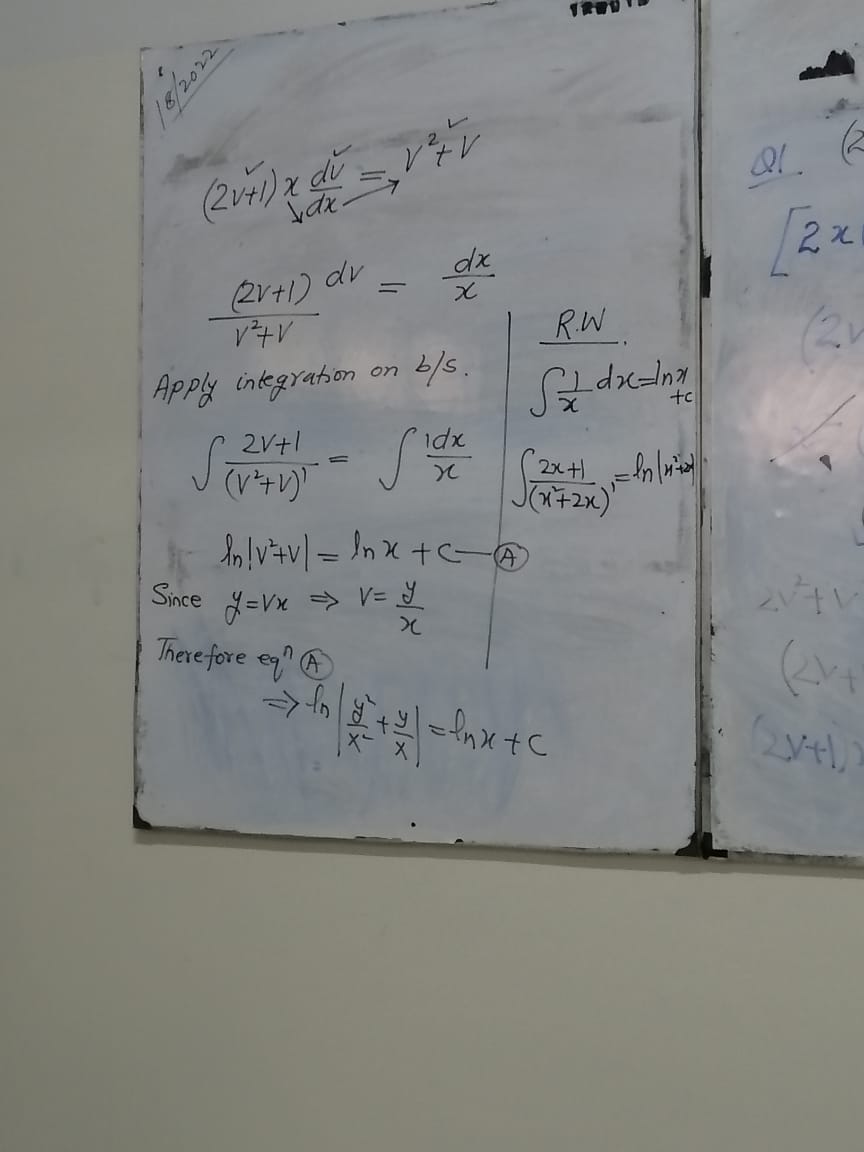 18/2022
(2v+1) x dv/dx = v²+v
(2v+1)/(v²+v) dv = dx/x
Apply integration on b/s.
∫ 2v+1/(v²+v)' = ∫ 1dx/x
ln|v²+v| = ln x + c — Ⓐ
Since y=vx ⇒ v= y/x
Therefore eqⁿ Ⓐ
⇒ ln |y²/x² + y/x| = ln x + c
R.W.
∫ 1/x dx = ln x
+c
∫ 2x+1/(x²+2x)' = ln
Q1. (2
[2x
(2v
2v²+v
(2v+
(2v+1)